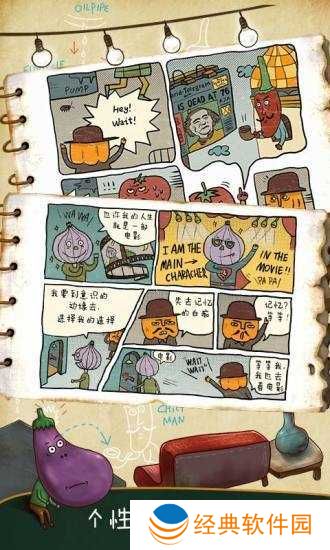 OILPIPE
PUMP
Hey!
Wait!
IS DEAD AT 76
WAWA!
也许我的人生
就是一部
电影
I AM THE
MAIN
CHARACHER
IN THE
MOVIE!!
PAPA!
我要到意识的
边缘去,
选择我的选择
失去记忆
的白痴
记忆?
等等
电影
WAIT,
WAIT!
等等我,
我也去
看电影
CHILI
MAN
个性
经典软件园